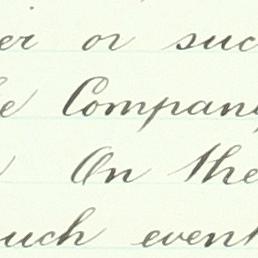 er or suc
e Company
On the
uch event